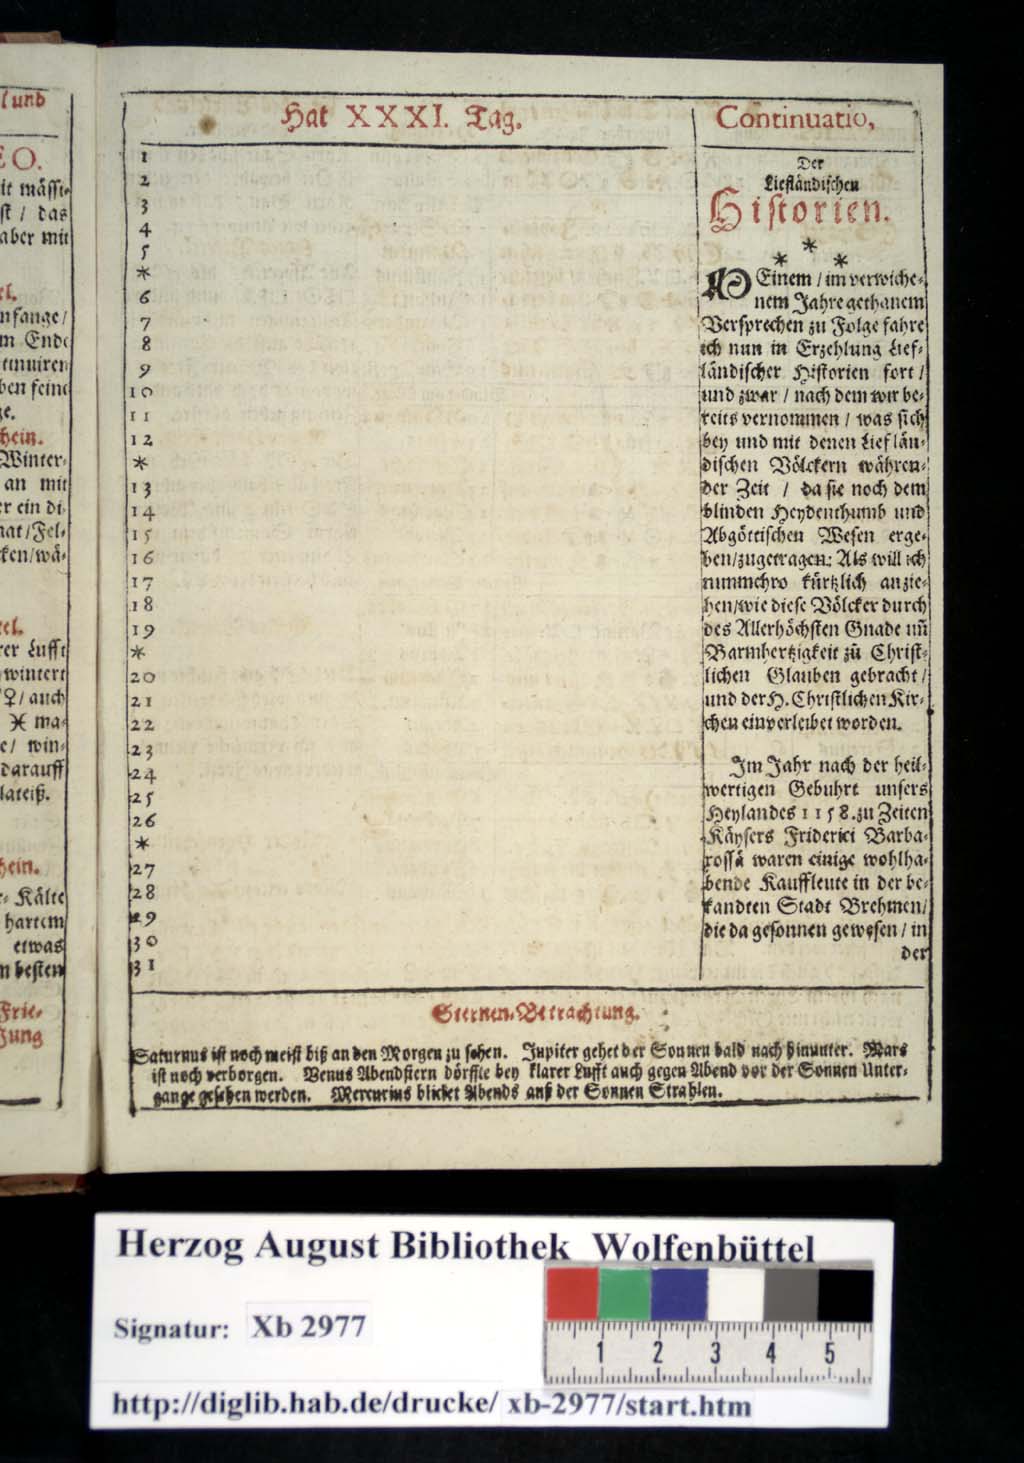 l und
EO.
it mässi-
st / das
aber mit
el.
nfange/
m Ende
tinuiren
ben seine
ge.
hein.
Winter-
an mit
er ein di-
nat/Fel-
ken/wä-
tel.
rer Lufft
wintert
♀/ auch
♓ ma-
e/ win-
darauff
lateiß.
hein.
r- Kälte
hartem
etwas
n besten
Frie-
Jung
Hat XXXI. Tag.
1
2
3
4
5
*
6
7
8
9
10
11
12
*
13
14
15
16
17
18
19
*
20
21
22
23
24
25
26
*
27
28
29
30
31
Continuatio,
Der
Liefländischen
Historien.
* * *
Einem / im verwiche-
nem Jahre gethanem
Versprechen zu Folge fahre
ich nun in Erzehlung Lief-
ländischer Historien fort /
und zwar / nach dem wir be-
reits vernommen / was sich
bey und mit denen Lieflän-
dischen Völckern währen-
der Zeit / da sie noch dem
blinden Heydenthumb und
Abgöttischen Wesen erge-
ben/zugetragen: Als will ich
nunmehro kürtzlich anzie-
hen/wie diese Völcker durch
des Allerhöchsten Gnade un̄
Barmhertzigkeit zū Christ-
lichen Glauben gebracht /
und der H. Christlichen Kir-
chen einverleibet worden.
Im Jahr nach der heil-
wertigen Gebuhrt unsers
Heylandes 1158. zu Zeiten
Käysers Friderici Barba-
rossä waren einige wohlha-
bende Kauffleute in der be-
kandten Stadt Brehmen/
die da gesonnen gewesen / in
der
Sternen-Betrachtung.
Saturnus ist noch meist biß an den Morgen zu sehen. Jupiter gehet der Sonnen bald nach hinunter. Mars
ist noch verborgen. Venus Abendstern dörffte bey klarer Lufft auch gegen Abend vor der Sonnen Unter-
gange gesehen werden. Mercurius blicket Abends auß der Sonnen Strahlen.
Herzog August Bibliothek Wolfenbüttel
Signatur: Xb 2977
1 2 3 4 5
http://diglib.hab.de/drucke/ xb-2977/start.htm